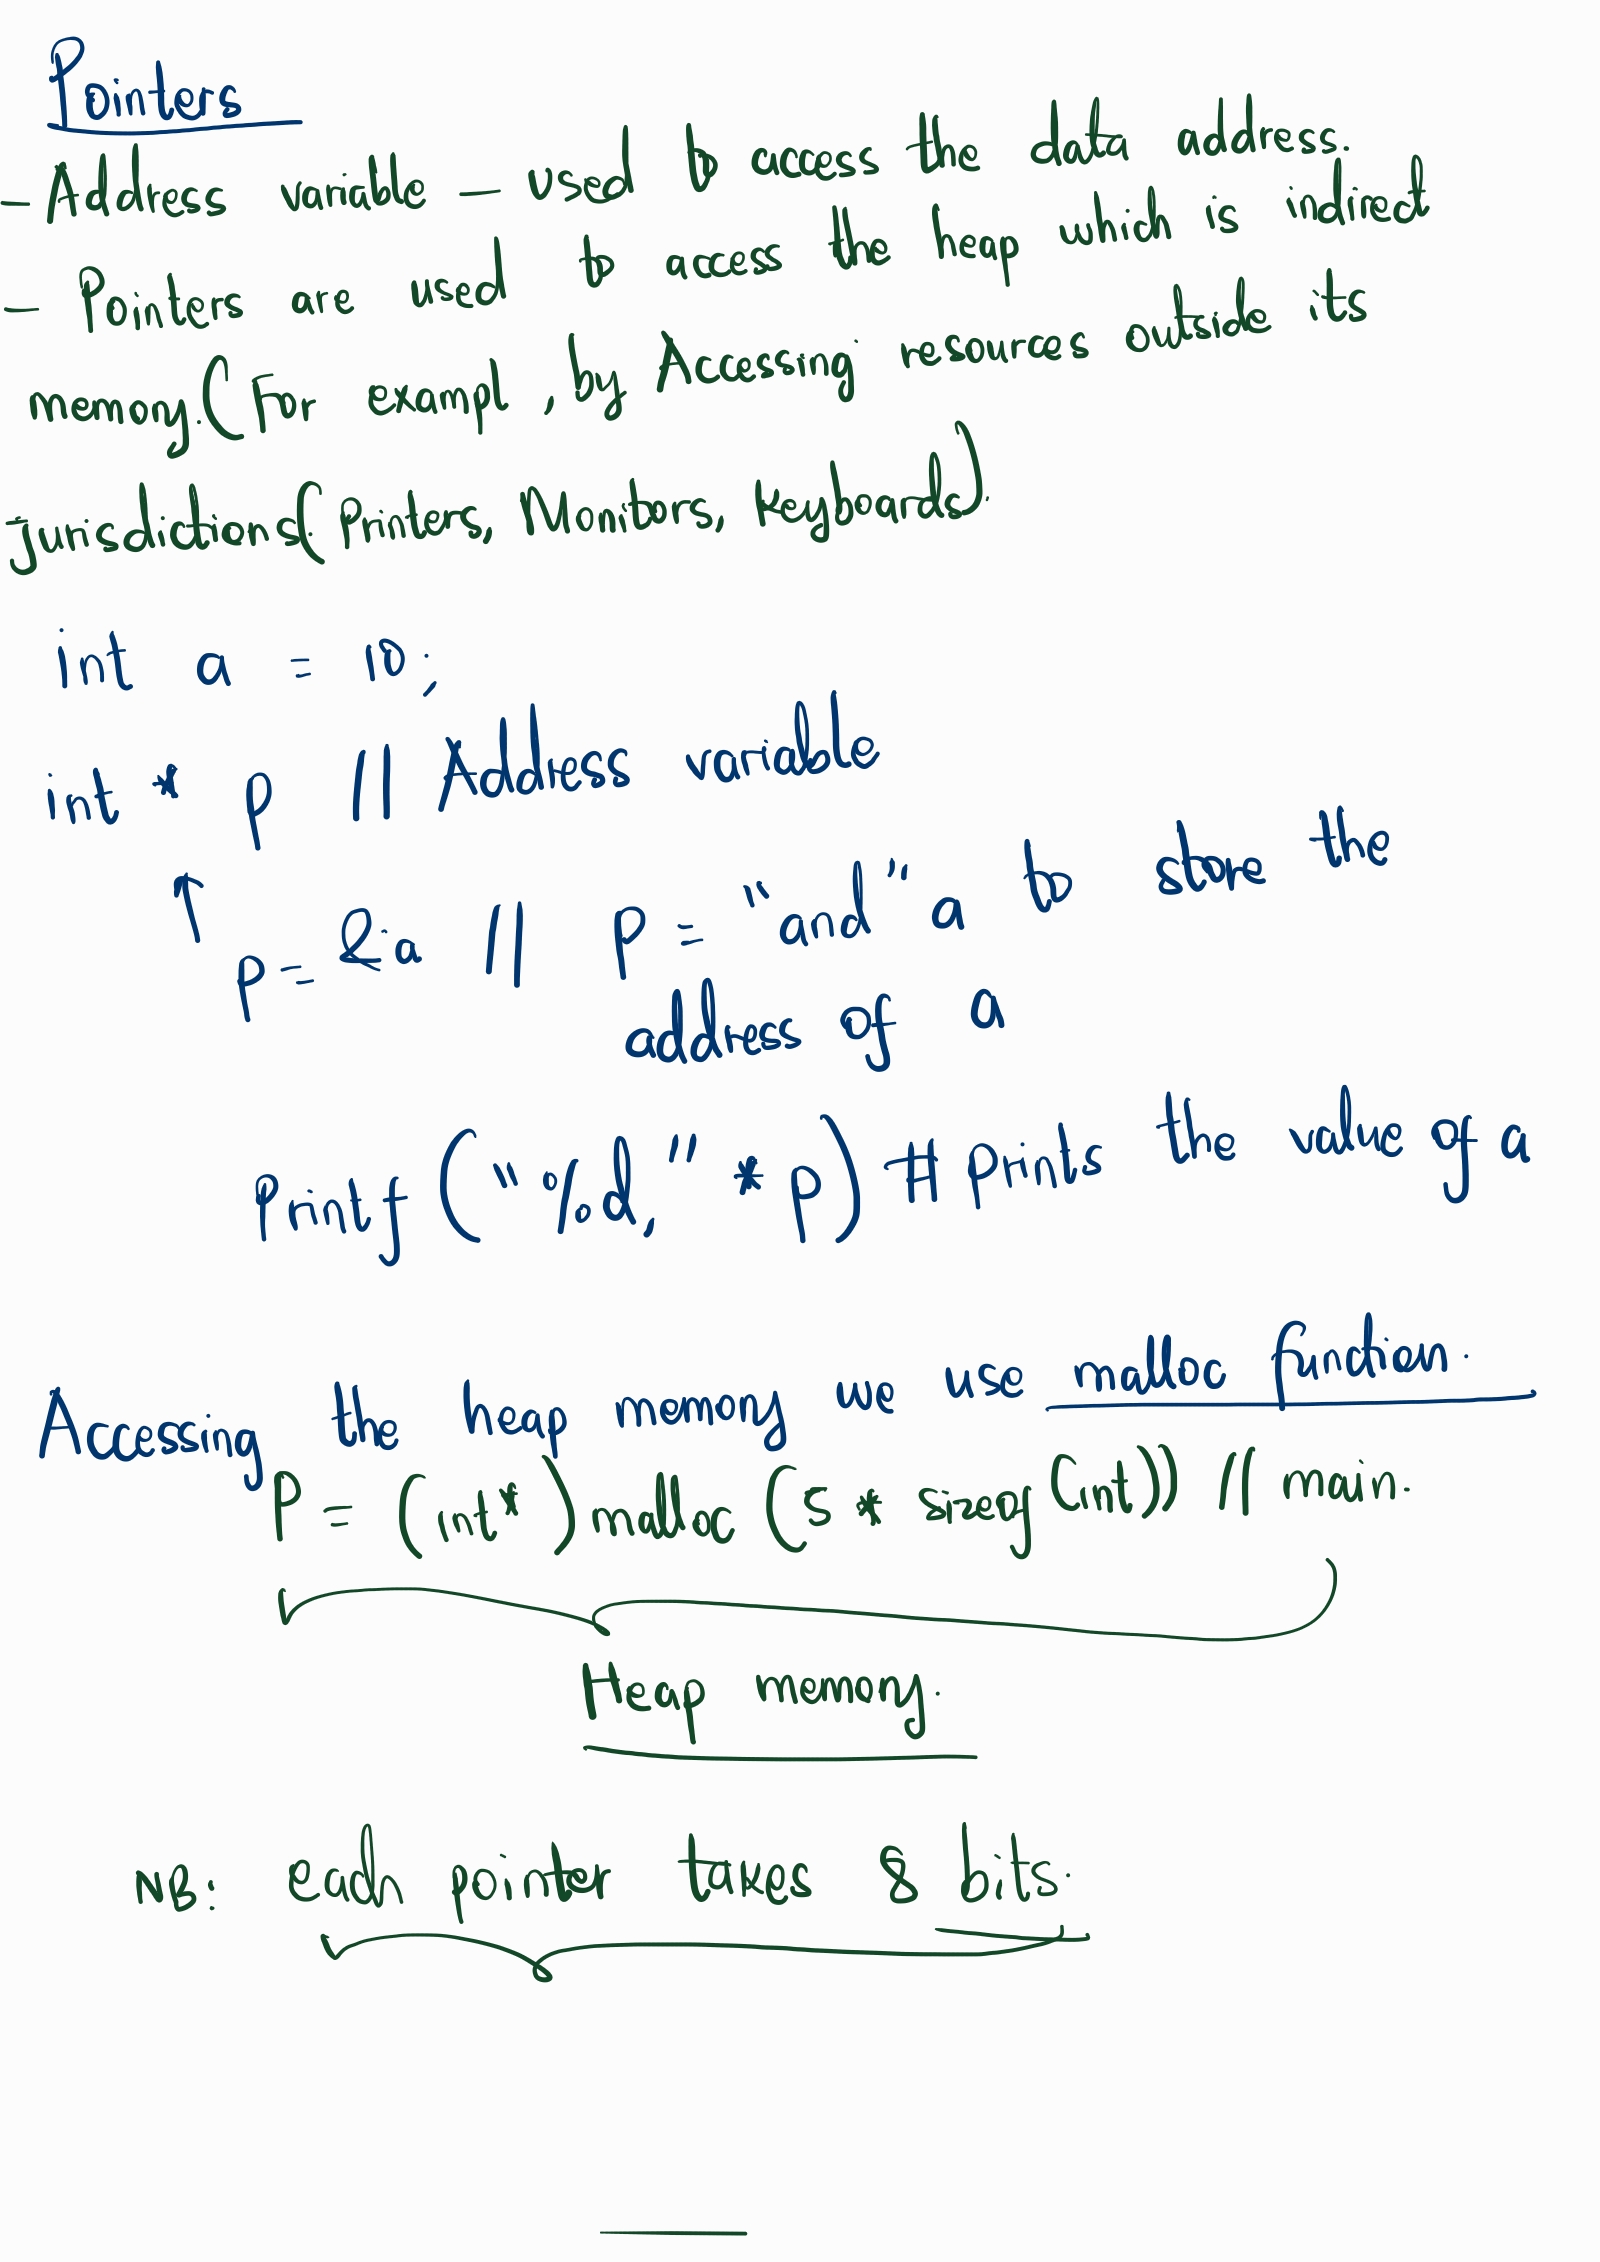 Pointers
- Address variable - used to access the data address.
- Pointers are used to access the heap which is indirect
memory. (For exampl, by Accessing resources outside its
jurisdictions (Printers, Monitors, Keyboards).
int a = 10;
int * p // Address variable
↑
p = &a // p = "and" a to store the
address of a
Printf ("%d," *p) # prints the value of a
Accessing the heap memory we use malloc function.
P = (int*) malloc (5 * sizeof (int)) // main.
Heap memory.
NB: each pointer takes 8 bits.